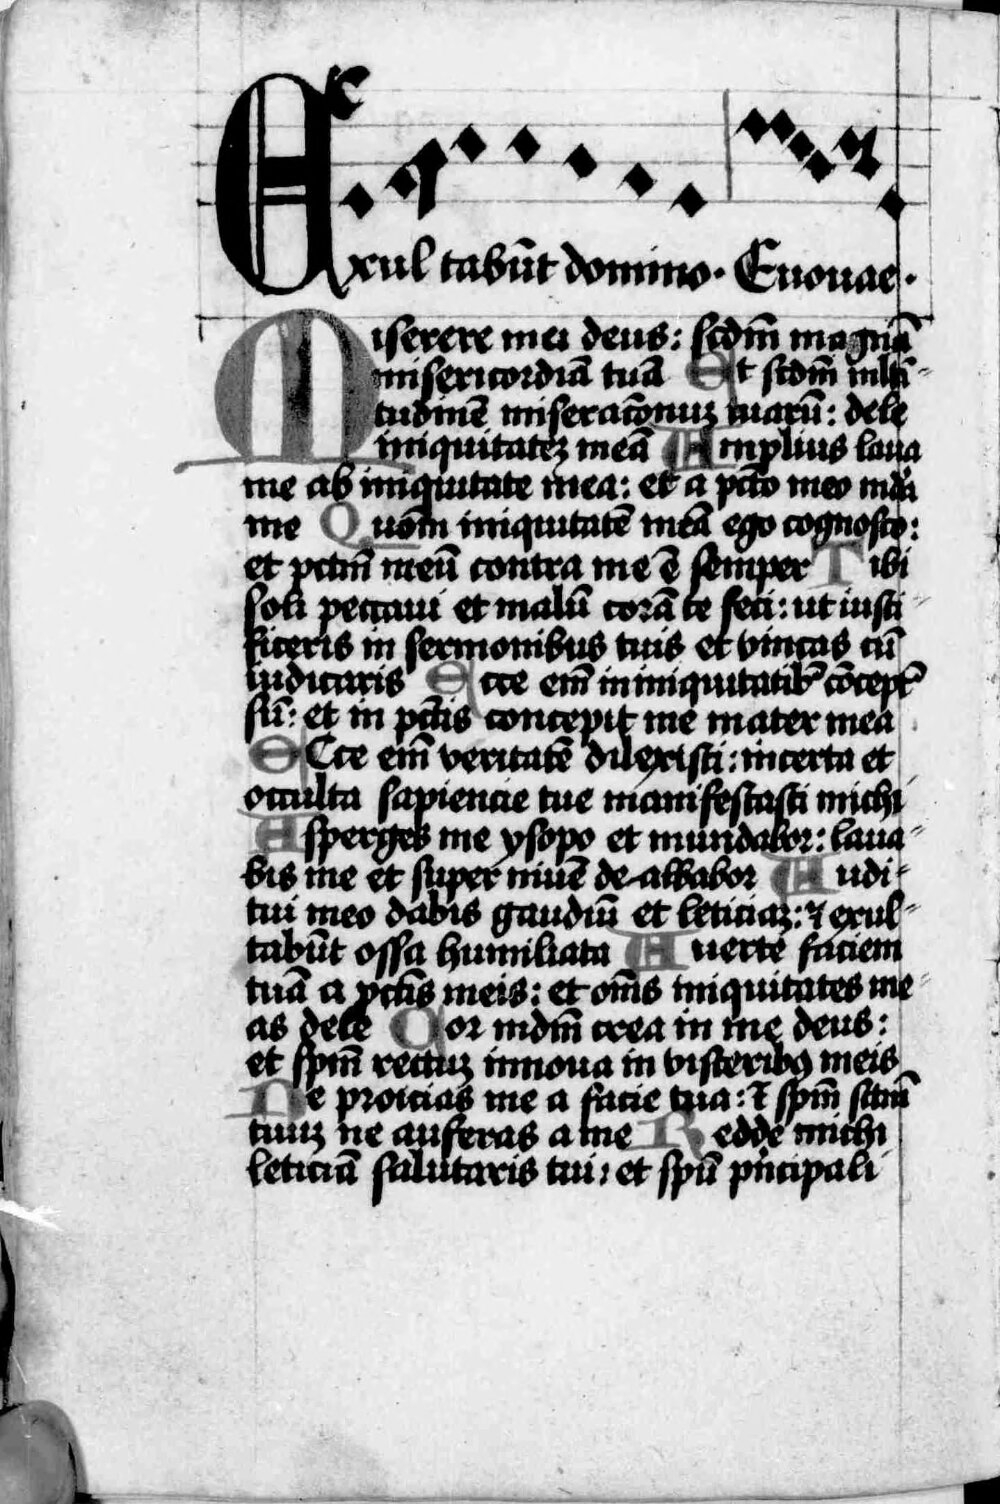 Exul tabūt domino. Euouae.
Miserere mei deus: scdm̄ magnā
misericordiā tuā Et scdm̄ mltī-
tudinē miseracōnuꝫ tuarū: dele
iniquitateꝫ meā Amplius laua
me ab iniquitate mea: et a pctō meo mda
me Quōm iniquitatē meā ego cognosco:
et pctm̄ meū contra me ē semper Tibi
soli peccaui et malū corā te feci: ut iusti-
ficeris in sermonibus tuis et vincas cū
iudicaris Ecce em̄ in iniquitatib' cōcept'
sū: et in pctīs concepit me mater mea
Ecce em̄ veritatē dilexisti: incerta et
occulta sapiencie tue manifestasti michi
Asperges me ysopo et mundabor: laua-
bis me et super niuē de-albabor Audi-
tui meo dabis gaudiū et leticiaꝫ: ⁊ exul-
tabūt ossa humiliata Auerte faciem
tuā a pctīs meis: et om̄s iniquitates me-
as dele Cor mdm̄ crea in me deus:
et spm̄ rectuꝫ innoua in visceribꝯ meis
Ne proicias me a facie tua: ⁊ spm̄ sctm̄
tuuꝫ ne auferas a me Redde michi
leticiā salutaris tui: et spū pͥncipali